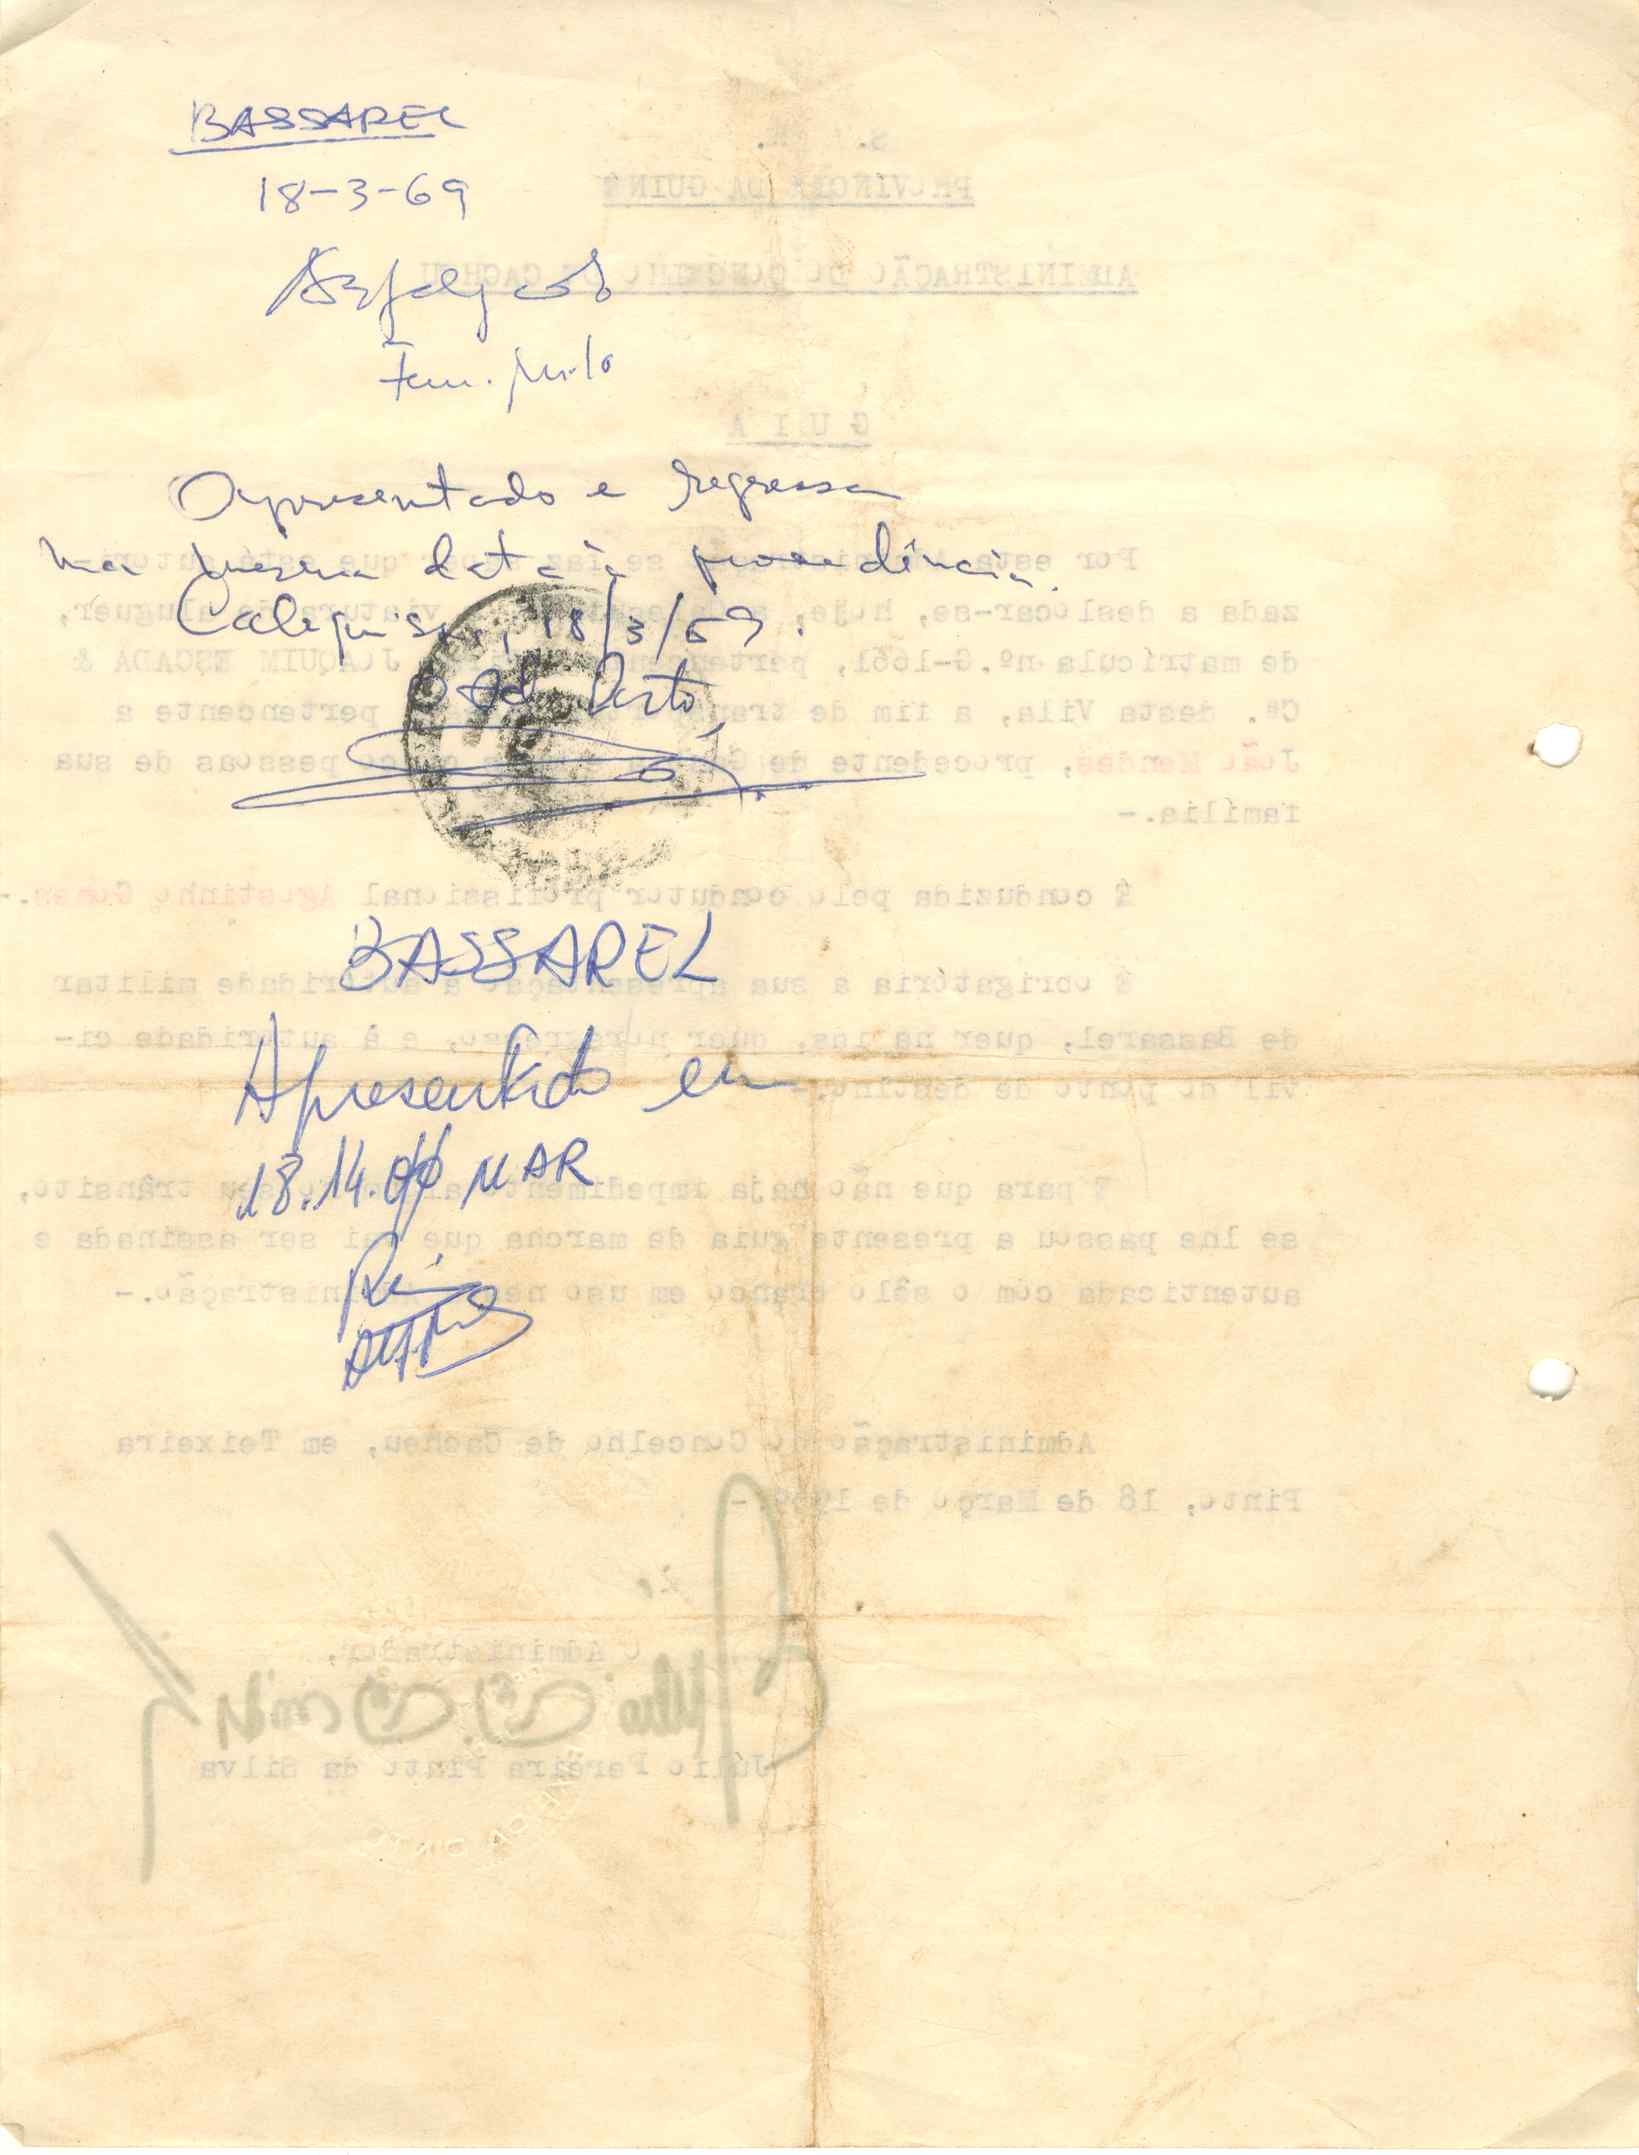 BASSAREL
18-3-69
Apresentado e regressa
na mesma data à procedência.
Calequisse, 18/3/69.
O Ad. Posto,
BASSAREL
Apresentado em
18.14.00 MAR
PROVÍNCIA DA GUINÉ
ADMINISTRAÇÃO DO CONCELHO DE CACHEU
G U I A
Por esta se faz que está autori-
zada a deslocar-se, hoje, viatura de aluguer,
de matrícula nº.G-1661, JOAQUIM ESCADA &
Cª. desta Vila, a fim de pertencente a
João Mendes, procedente de pessoas de sua
família.-
É conduzida pelo condutor profissional Agostinho Gomes.-
É obrigatória a sua apresentação à autoridade militar
de Bassarel, quer na ida, quer no regresso, e à autoridade ci-
vil do ponto de destino.-
E para que não haja impedimento seu trânsito,
se lhe passou a presente guia de marcha que vai ser assinada e
autenticada com o sêlo branco em uso nesta Administração.-
Administração do Concelho de Cacheu, em Teixeira
Pinto, 18 de Março de 1969.-
O Administrador,
Júlio Pereira Pinto da Silva